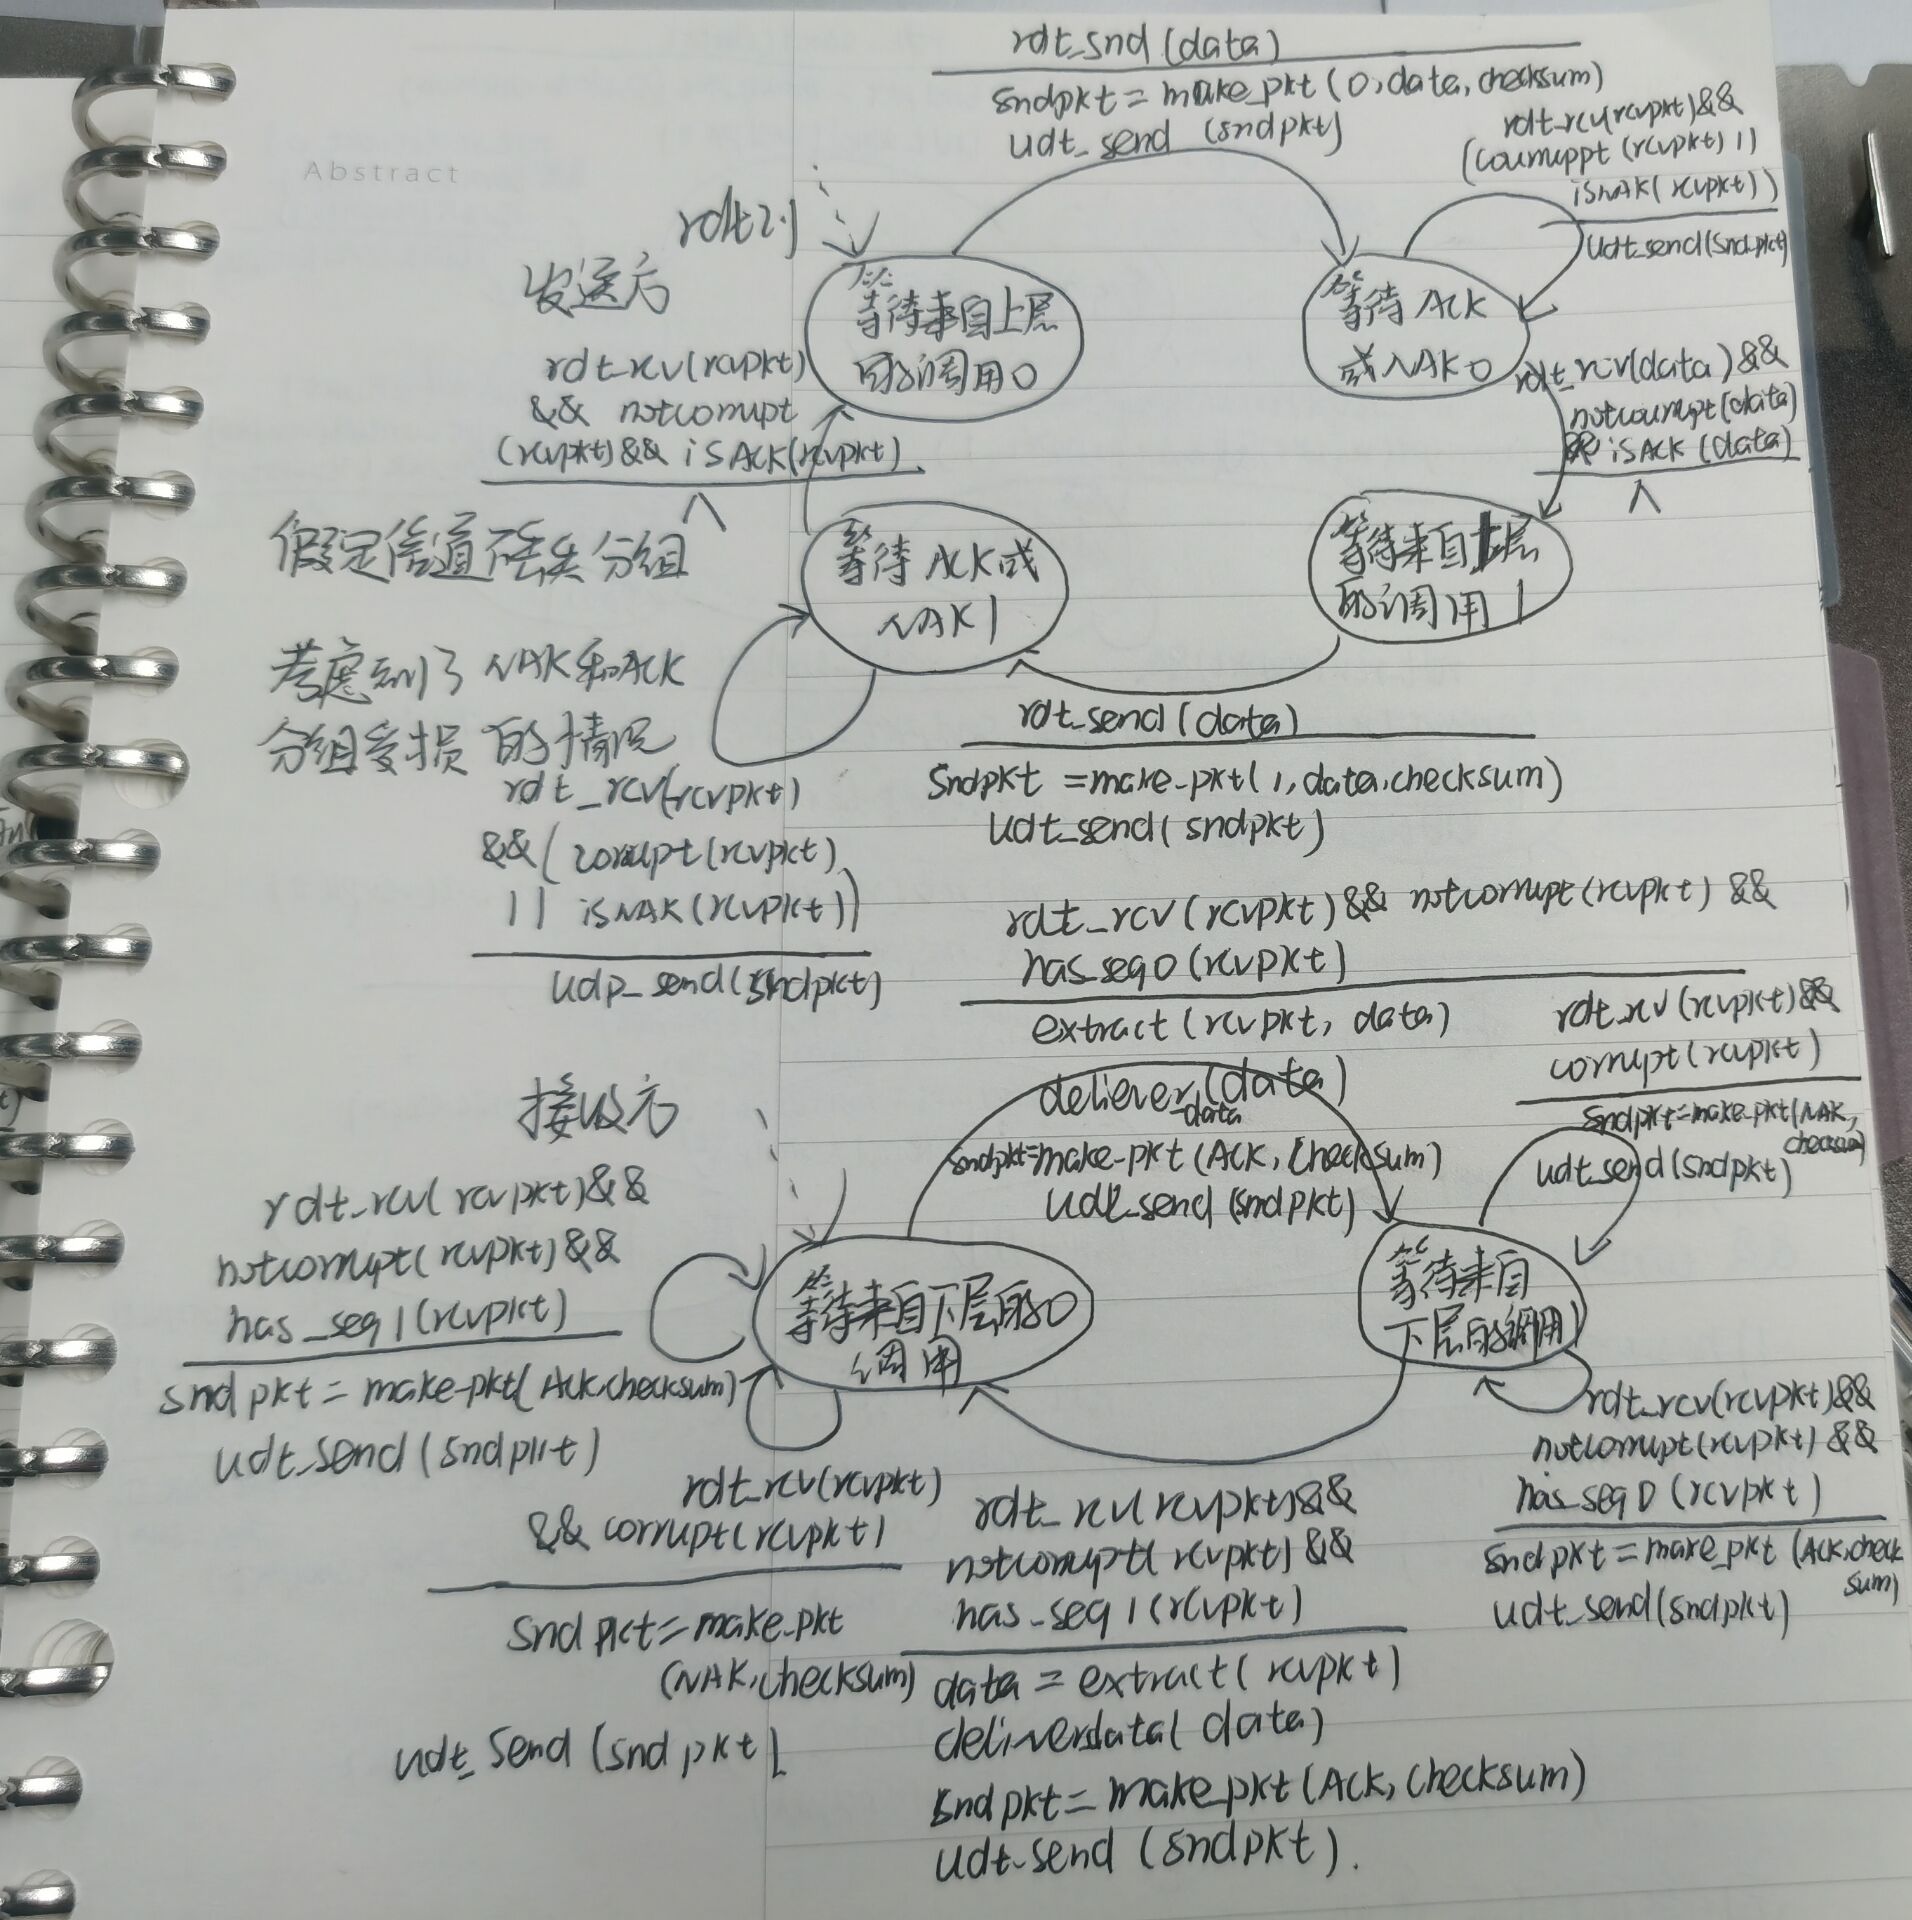 Abstract
rdt_snd(data)
sndpkt = make_pkt(0,data,checksum)
udt_send (sndpkt)
rdt_rcv(rcvpkt)&&
(couruppt (rcvpkt) ||
isNAK(rcvpkt))
udt_send(sndpkt)
rdt2.1
发送方
等待来自上层
的调用0
等待 ACK
或NAK 0
rdt_rcv(rcvpkt)
&& notcorrupt
(rcvpkt)&& isACK(rcvpkt)
Λ
rdt_rcv(data) &&
notcorrupt(data)
&& isACK (data)
Λ
假定信道不丢失分组
等待 ACK或
NAK 1
等待来自上层
的调用 1
考虑到了 NAK和ACK
分组受损 的情况
rdt_send(data)
sndpkt =make_pkt(1,data,checksum)
udt_send(sndpkt)
rdt_rcv(rcvpkt)
&&( corrupt(rcvpkt)
|| isNAK(rcvpkt))
udp_send(sndpkt)
rdt_rcv(rcvpkt)&& notcorrupt(rcvpkt) &&
has_seq0(rcvpkt)
extract(rcvpkt, data)
deliever_data(data)
sndpkt=make-pkt(ACK, checksum)
udt_send(sndpkt)
rdt_rcv(rcvpkt)&&
corrupt(rcvpkt)
sndpkt=make-pkt(NAK,
checksum)
udt_send(sndpkt)
接收方
rdt_rcv(rcvpkt)&&
notcorrupt(rcvpkt)&&
has_seq1(rcvpkt)
sndpkt = make-pkt(ACK,checksum)
udt_send(sndpkt)
等待来自下层的0
调用
等待来自
下层的调用1
rdt_rcv(rcvpkt)
&& corrupt(rcvpkt)
sndpkt=make_pkt
(NAK,checksum)
udt_send(sndpkt)
rdt_rcv(rcvpkt)&&
notcorrupt(rcvpkt) &&
has_seq1(rcvpkt)
data = extract(rcvpkt)
deliverdata(data)
sndpkt=make_pkt(ACK,checksum)
udt_send(sndpkt).
rdt_rcv(rcvpkt)&&
notcorrupt(rcvpkt) &&
has_seq0(rcvpkt)
sndpkt=make_pkt (ACK,check
sum)
udt_send(sndpkt)